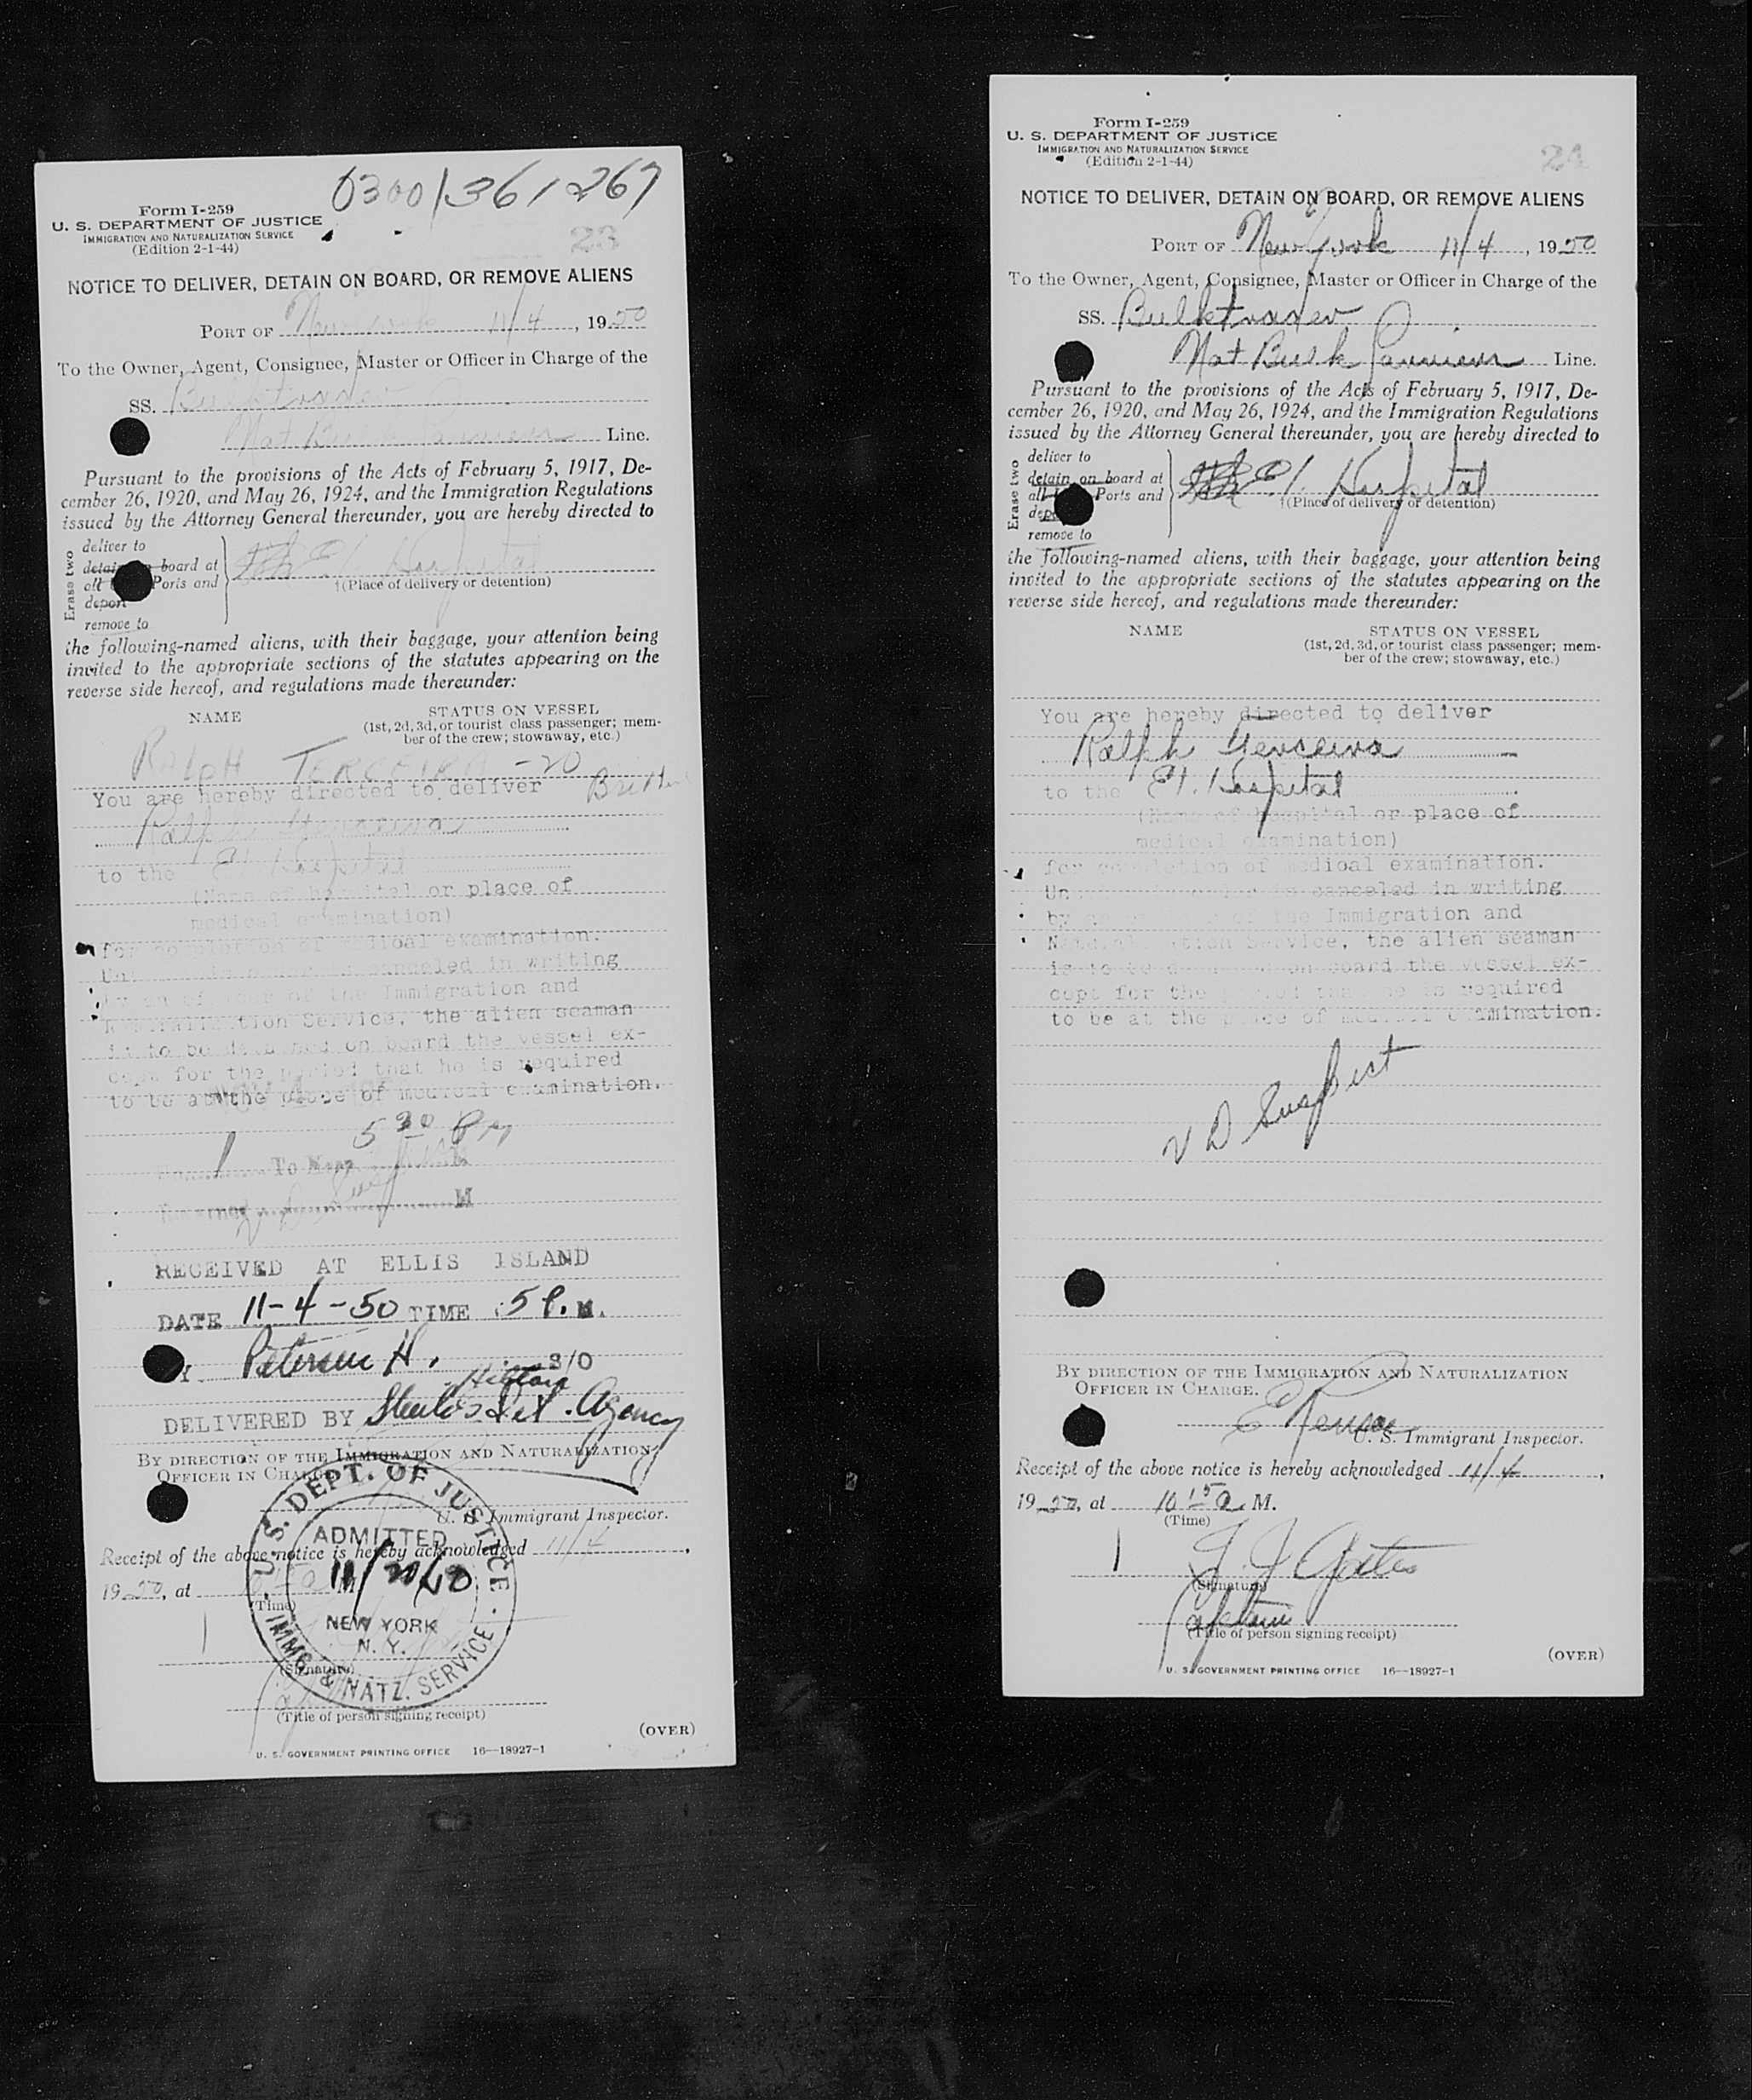 0300/36/267
Form I-259
U. S. DEPARTMENT OF JUSTICE
IMMIGRATION AND NATURALIZATION SERVICE
(Edition 2-1-44)
23
NOTICE TO DELIVER, DETAIN ON BOARD, OR REMOVE ALIENS
PORT OF New York 11/4, 1950
To the Owner, Agent, Consignee, Master or Officer in Charge of the
SS. Bulktrader
Nat Bulk Carriers Line.
Pursuant to the provisions of the Acts of February 5, 1917, De-
cember 26, 1920, and May 26, 1924, and the Immigration Regulations
issued by the Attorney General thereunder, you are hereby directed to
Erase two
deliver to
detain on board at
all Ports and
deport
remove to
E I. Hospital
†(Place of delivery or detention)
the following-named aliens, with their baggage, your attention being
invited to the appropriate sections of the statutes appearing on the
reverse side hereof, and regulations made thereunder:
NAME STATUS ON VESSEL
(1st, 2d, 3d, or tourist class passenger; mem-
ber of the crew; stowaway, etc.)
RALPH TERCEIRA - 20
You are hereby directed to deliver
Ralph Terceira
to the E I. Hospital
(Name of hospital or place of
medical examination)
for completion of medical examination.
Unless this is canceled in writing
by an officer of the Immigration and
Naturalization Service, the alien seaman
is to be detained on board the vessel ex-
cept for the period that he is required
to be at the place of medical examination.
5 30 PM
1 To
M
RECEIVED AT ELLIS ISLAND
DATE 11-4-50 TIME 5 P. M.
Y. H. S/O
DELIVERED BY Det. Agency
BY DIRECTION OF THE IMMIGRATION AND NATURALIZATION
OFFICER IN CHARGE.
U. S. Immigrant Inspector.
Receipt of the above notice is hereby acknowledged 11/4,
1950, at M.
(Time)
U. S. DEPT. OF JUSTICE
ADMITTED
NEW YORK
N. Y.
IMMG. & NATZ. SERVICE
(Signature)
(Title of person signing receipt)
(OVER)
U. S. GOVERNMENT PRINTING OFFICE 16—18927-1
Form I-259
U. S. DEPARTMENT OF JUSTICE
IMMIGRATION AND NATURALIZATION SERVICE
(Edition 2-1-44)
24
NOTICE TO DELIVER, DETAIN ON BOARD, OR REMOVE ALIENS
PORT OF New York 11/4, 1950
To the Owner, Agent, Consignee, Master or Officer in Charge of the
SS. Bulktrader
Nat Bulk Carriers Line.
Pursuant to the provisions of the Acts of February 5, 1917, De-
cember 26, 1920, and May 26, 1924, and the Immigration Regulations
issued by the Attorney General thereunder, you are hereby directed to
Erase two
deliver to
detain on board at
all Ports and
remove to
E I. Hospital
†(Place of delivery or detention)
the following-named aliens, with their baggage, your attention being
invited to the appropriate sections of the statutes appearing on the
reverse side hereof, and regulations made thereunder:
NAME STATUS ON VESSEL
(1st, 2d, 3d, or tourist class passenger; mem-
ber of the crew; stowaway, etc.)
You are hereby directed to deliver
Ralph Terceira
to the E I. Hospital
(Name of hospital or place of
medical examination)
for completion of medical examination.
Unless this is canceled in writing
by an officer of the Immigration and
Naturalization Service, the alien seaman
is to be detained on board the vessel ex-
cept for the period that he is required
to be at the place of medical examination.
V D Suspect
BY DIRECTION OF THE IMMIGRATION AND NATURALIZATION
OFFICER IN CHARGE.
U. S. Immigrant Inspector.
Receipt of the above notice is hereby acknowledged 11/4,
1950, at 10 15 a M.
(Time)
J. J. Gates
(Signature)
Captain
(Title of person signing receipt)
(OVER)
U. S. GOVERNMENT PRINTING OFFICE 16—18927-1